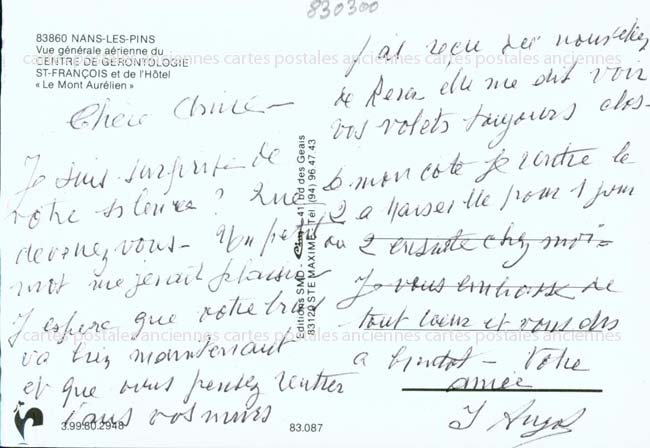 830300
83860 NANS-LES-PINS
Vue générale aérienne du
CENTRE DE GERONTOLOGIE
ST-FRANÇOIS et de l'Hôtel
« Le Mont Aurélien »
cartes postales anciennes cartes postales anciennes cartes postales anciennes
Chère Amie –
Je suis surprise de
votre silence ? Que
devenez vous – Un petit
mot me ferait plaisir
J'espère que votre bras
va bien maintenant
et que vous pensez rentrer
dans vos murs
J'ai reçu des nouvelles
de elle me dit voir
vos volets toujours clos –
mon cote je rentre le
2 a Marseille pour 1 jour
ou 2 ensuite chez moi –
Je vous embrasse de
tout cœur et vous dis
a bientot – Votre
amie
Editions SMD - 41, bd des Geais
83120 STE MAXIME - Tél (94) 96.47.43
cartes postales anciennes cartes postales anciennes cartes postales anciennes
3.99.80.2948
83.087